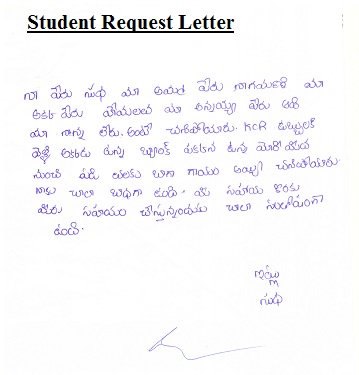 Student Request Letter
నా పేరు సుధ మా అమ్మ పేరు నాగమణి మా
అక్క పేరు మా అన్నయ్య పేరు
మా నాన్న లేరు. అంటే చనిపోయారు. KCR డబ్బులకి
వెళ్ళి అక్కడ ఉన్న బ్యాంక్ పక్కన ఉన్న
నుంచి పడి తలకు బాగా గాయం అయ్యి చనిపోయారు
నాకు చాలా బాధగా ఉంది. మీ సహాయం కొరకు
మీరు సహాయం చేస్తున్నందుకు చాలా సంతోషంగా
ఉంది.
ఇట్లు
సుధ